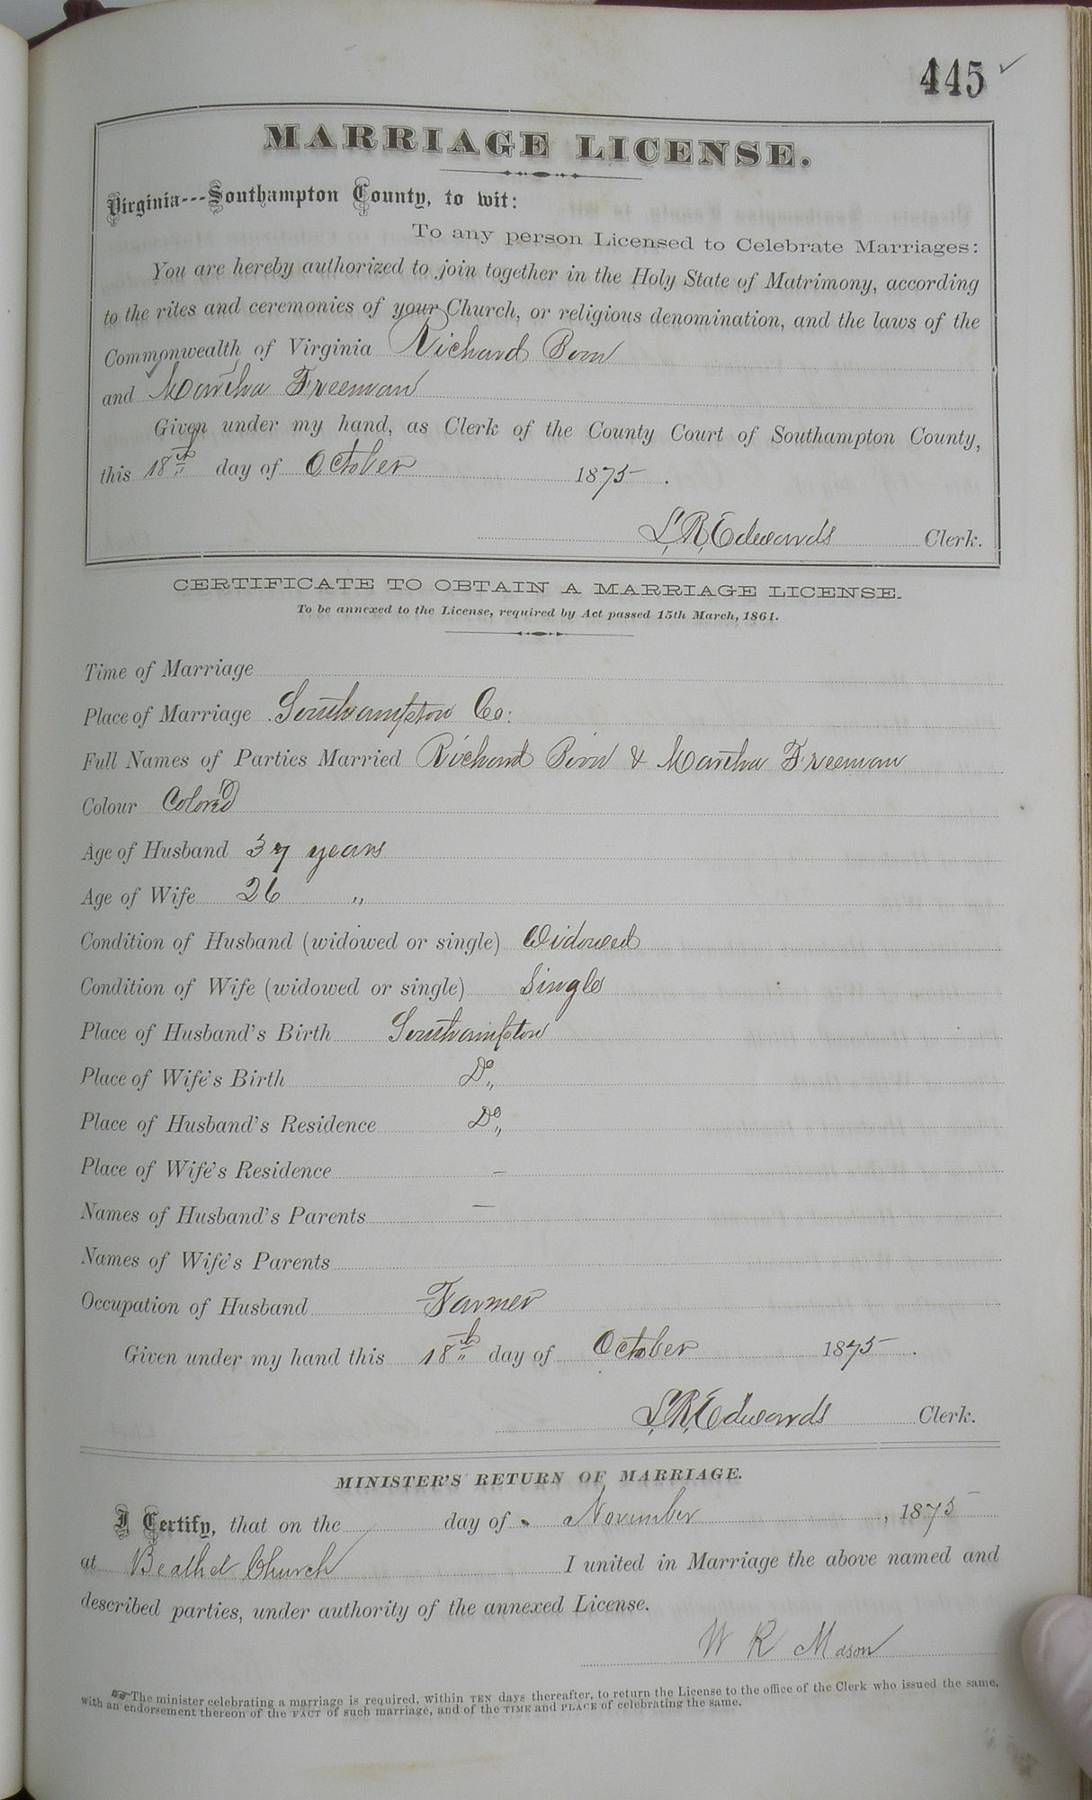 445 ✓
MARRIAGE LICENSE.
Virginia---Southampton County, to wit:
To any person Licensed to Celebrate Marriages:
You are hereby authorized to join together in the Holy State of Matrimony, according
to the rites and ceremonies of your Church, or religious denomination, and the laws of the
Commonwealth of Virginia Richard
and Martha Freeman
Given under my hand, as Clerk of the County Court of Southampton County,
this 18th day of October 1875.
L. R. Edwards Clerk.
CERTIFICATE TO OBTAIN A MARRIAGE LICENSE.
To be annexed to the License, required by Act passed 15th March, 1861.
Time of Marriage
Place of Marriage Southampton Co:
Full Names of Parties Married Richard & Martha Freeman
Colour Colored
Age of Husband 37 years
Age of Wife 26 "
Condition of Husband (widowed or single) Widowed
Condition of Wife (widowed or single) Single
Place of Husband's Birth Southampton
Place of Wife's Birth Do
Place of Husband's Residence Do
Place of Wife's Residence –
Names of Husband's Parents —
Names of Wife's Parents
Occupation of Husband Farmer
Given under my hand this 18th day of October 1875.
L. R. Edwards Clerk.
MINISTER'S RETURN OF MARRIAGE.
I Certify, that on the day of November, 1875
at Beathel Church I united in Marriage the above named and
described parties, under authority of the annexed License.
W R Mason
The minister celebrating a marriage is required, within TEN days thereafter, to return the License to the office of the Clerk who issued the same,
with an endorsement thereon of the FACT of such marriage, and of the TIME and PLACE of celebrating the same.